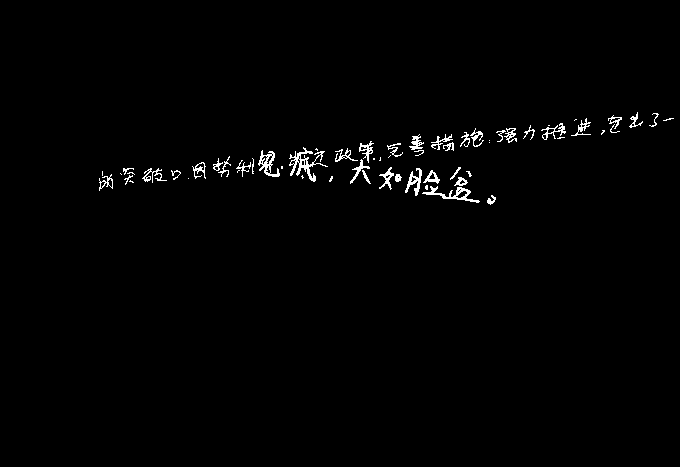 的突破口.因势利 定政策,完善措施.强力推进,走出了一
，大如脸盆。